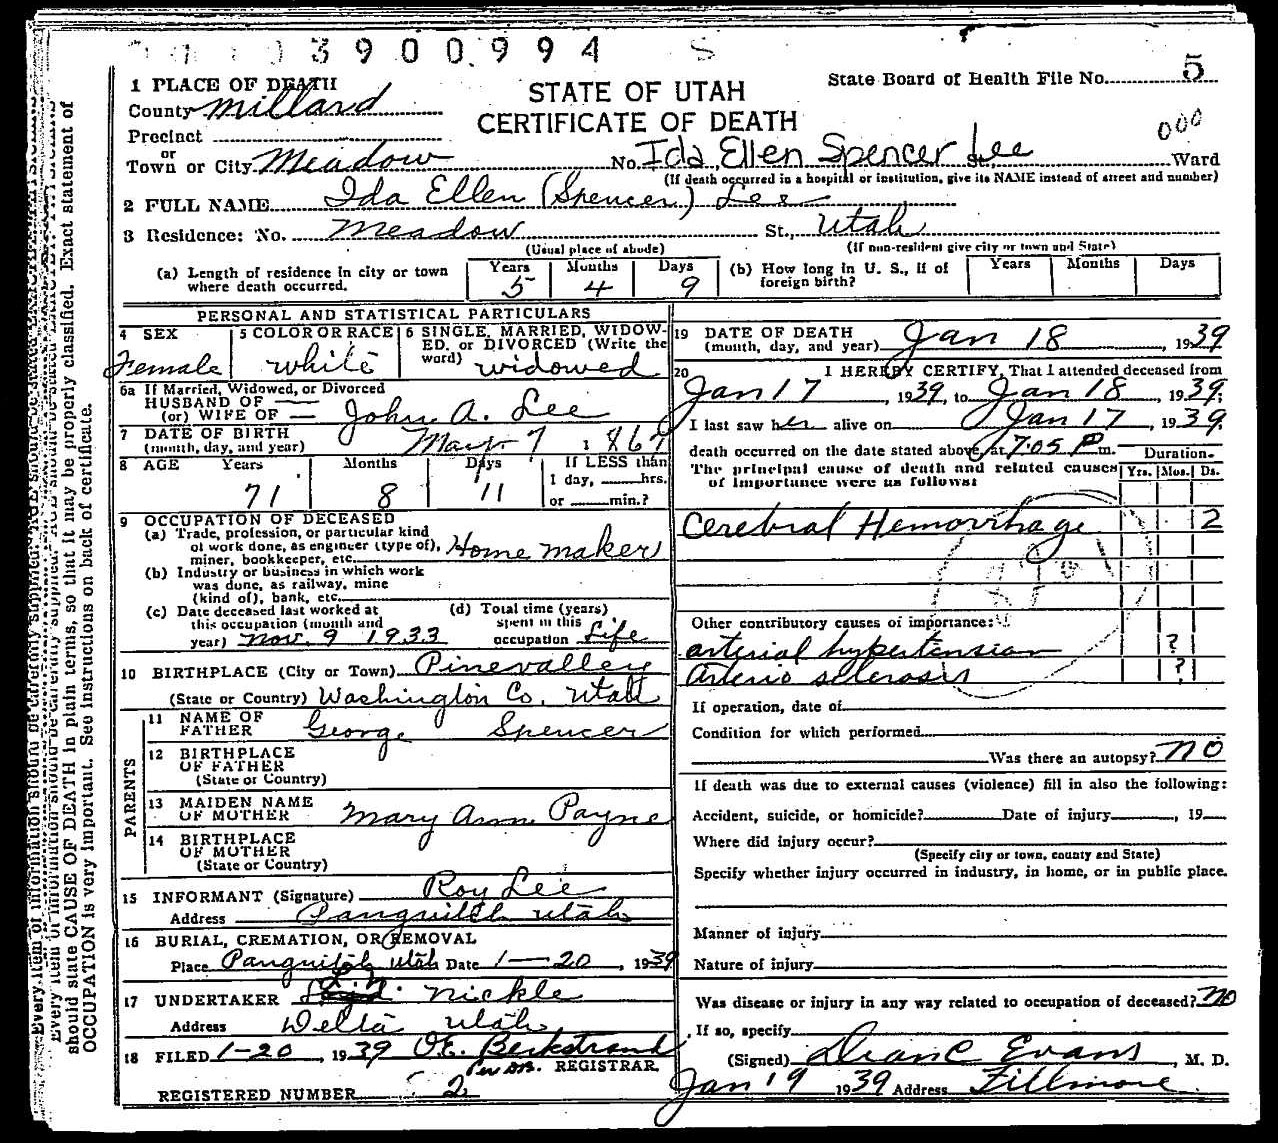 3900994 S
1 PLACE OF DEATH
STATE OF UTAH
CERTIFICATE OF DEATH
State Board of Health File No. 5
County Millard
Precinct
000
Town or City Meadow No. Ida Ellen Spencer Lee St. Ward
(If death occurred in a hospital or institution, give its NAME instead of street and number)
2 FULL NAME Ida Ellen (Spencer) Lee
3 Residence: No. Meadow St., Utah
(Usual place of abode) (If non-resident give city or town and State)
(a) Length of residence in city or town where death occurred. Years 5 Months 4 Days 9
(b) How long in U. S., if of foreign birth? Years Months Days
PERSONAL AND STATISTICAL PARTICULARS
4 SEX Female
5 COLOR OR RACE white
6 SINGLE, MARRIED, WIDOWED, or DIVORCED (Write the word) widowed
6a If Married, Widowed, or Divorced
HUSBAND OF
(or) WIFE OF John A. Lee
7 DATE OF BIRTH
(month, day, and year) May 7 1867
8 AGE Years 71 Months 8 Days 11 If LESS than 1 day, hrs. or min.?
9 OCCUPATION OF DECEASED
(a) Trade, profession, or particular kind
of work done, as engineer (type of), Home maker
miner, bookkeeper, etc.
(b) Industry or business in which work
was done, as railway, mine
(kind of), bank, etc.
(c) Date deceased last worked at
this occupation (month and
year) Nov. 9 1933
(d) Total time (years)
spent in this
occupation Life
10 BIRTHPLACE (City or Town) Pinevalley
(State or Country) Washington Co. Utah
PARENTS
11 NAME OF FATHER George Spencer
12 BIRTHPLACE OF FATHER
(State or Country)
13 MAIDEN NAME OF MOTHER Mary Ann Payne
14 BIRTHPLACE OF MOTHER
(State or Country)
15 INFORMANT (Signature) Roy Lee
Address Panguitch Utah
16 BURIAL, CREMATION, OR REMOVAL
Place Panguitch Utah Date 1-20, 1939
17 UNDERTAKER Nickle
Address Delta Utah
18 FILED 1-20, 1939 Beckstrand
REGISTRAR.
REGISTERED NUMBER 2
19 DATE OF DEATH
(month, day, and year) Jan 18, 1939
20 I HEREBY CERTIFY, That I attended deceased from
Jan 17, 1939, to Jan 18, 1939;
I last saw her alive on Jan 17, 1939.
death occurred on the date stated above, at 7:05 P m.
Duration.
The principal cause of death and related causes
of importance were as follows:
Yrs. Mos. Ds.
Cerebral Hemorrhage 2
Other contributory causes of importance:
arterial hypertension ?
Arterio sclerosis ?
If operation, date of
Condition for which performed
Was there an autopsy? no
If death was due to external causes (violence) fill in also the following:
Accident, suicide, or homicide? Date of injury , 19
Where did injury occur?
(Specify city or town, county and State)
Specify whether injury occurred in industry, in home, or in public place.
Manner of injury
Nature of injury
Was disease or injury in any way related to occupation of deceased? no
If so, specify
(Signed) Dean C Evans, M. D.
Jan 19 1939 Address Fillmore
Every item of information should be carefully supplied. AGE should be stated EXACTLY. PHYSICIANS
should state CAUSE OF DEATH in plain terms, so that it may be properly classified. Exact statement of
OCCUPATION is very important. See instructions on back of certificate.